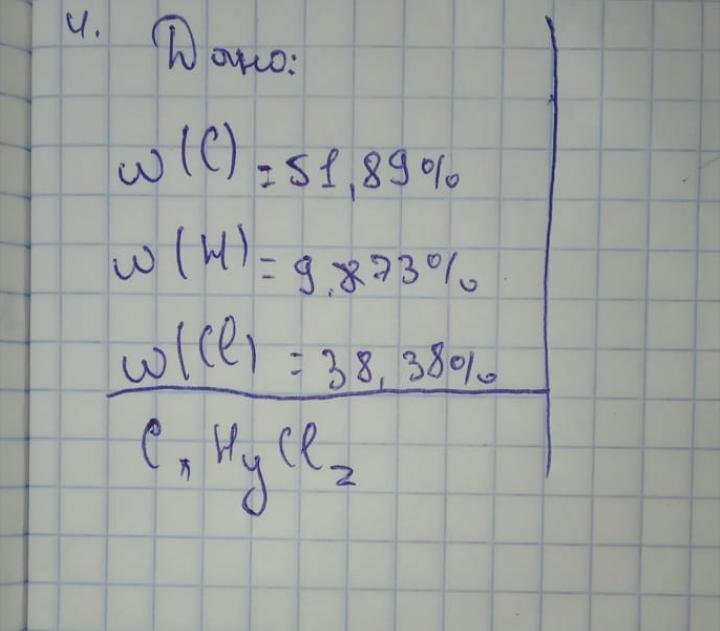 4.
Дано:
w(C) = 51,89%
w(H) = 9,873%
w(Cl) = 38,38%
CxHyClz